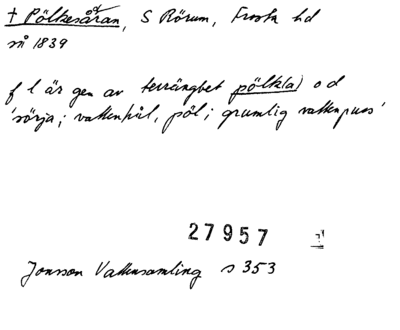 † Pölkesåran, S Rörum, Frosta hd
nå 1839
f l är gen av terrängbet pölk(a) o d
'sörja; vattenhål, pöl; grumlig vattenpuss'
27957
Jonsson Vattensamling s 353